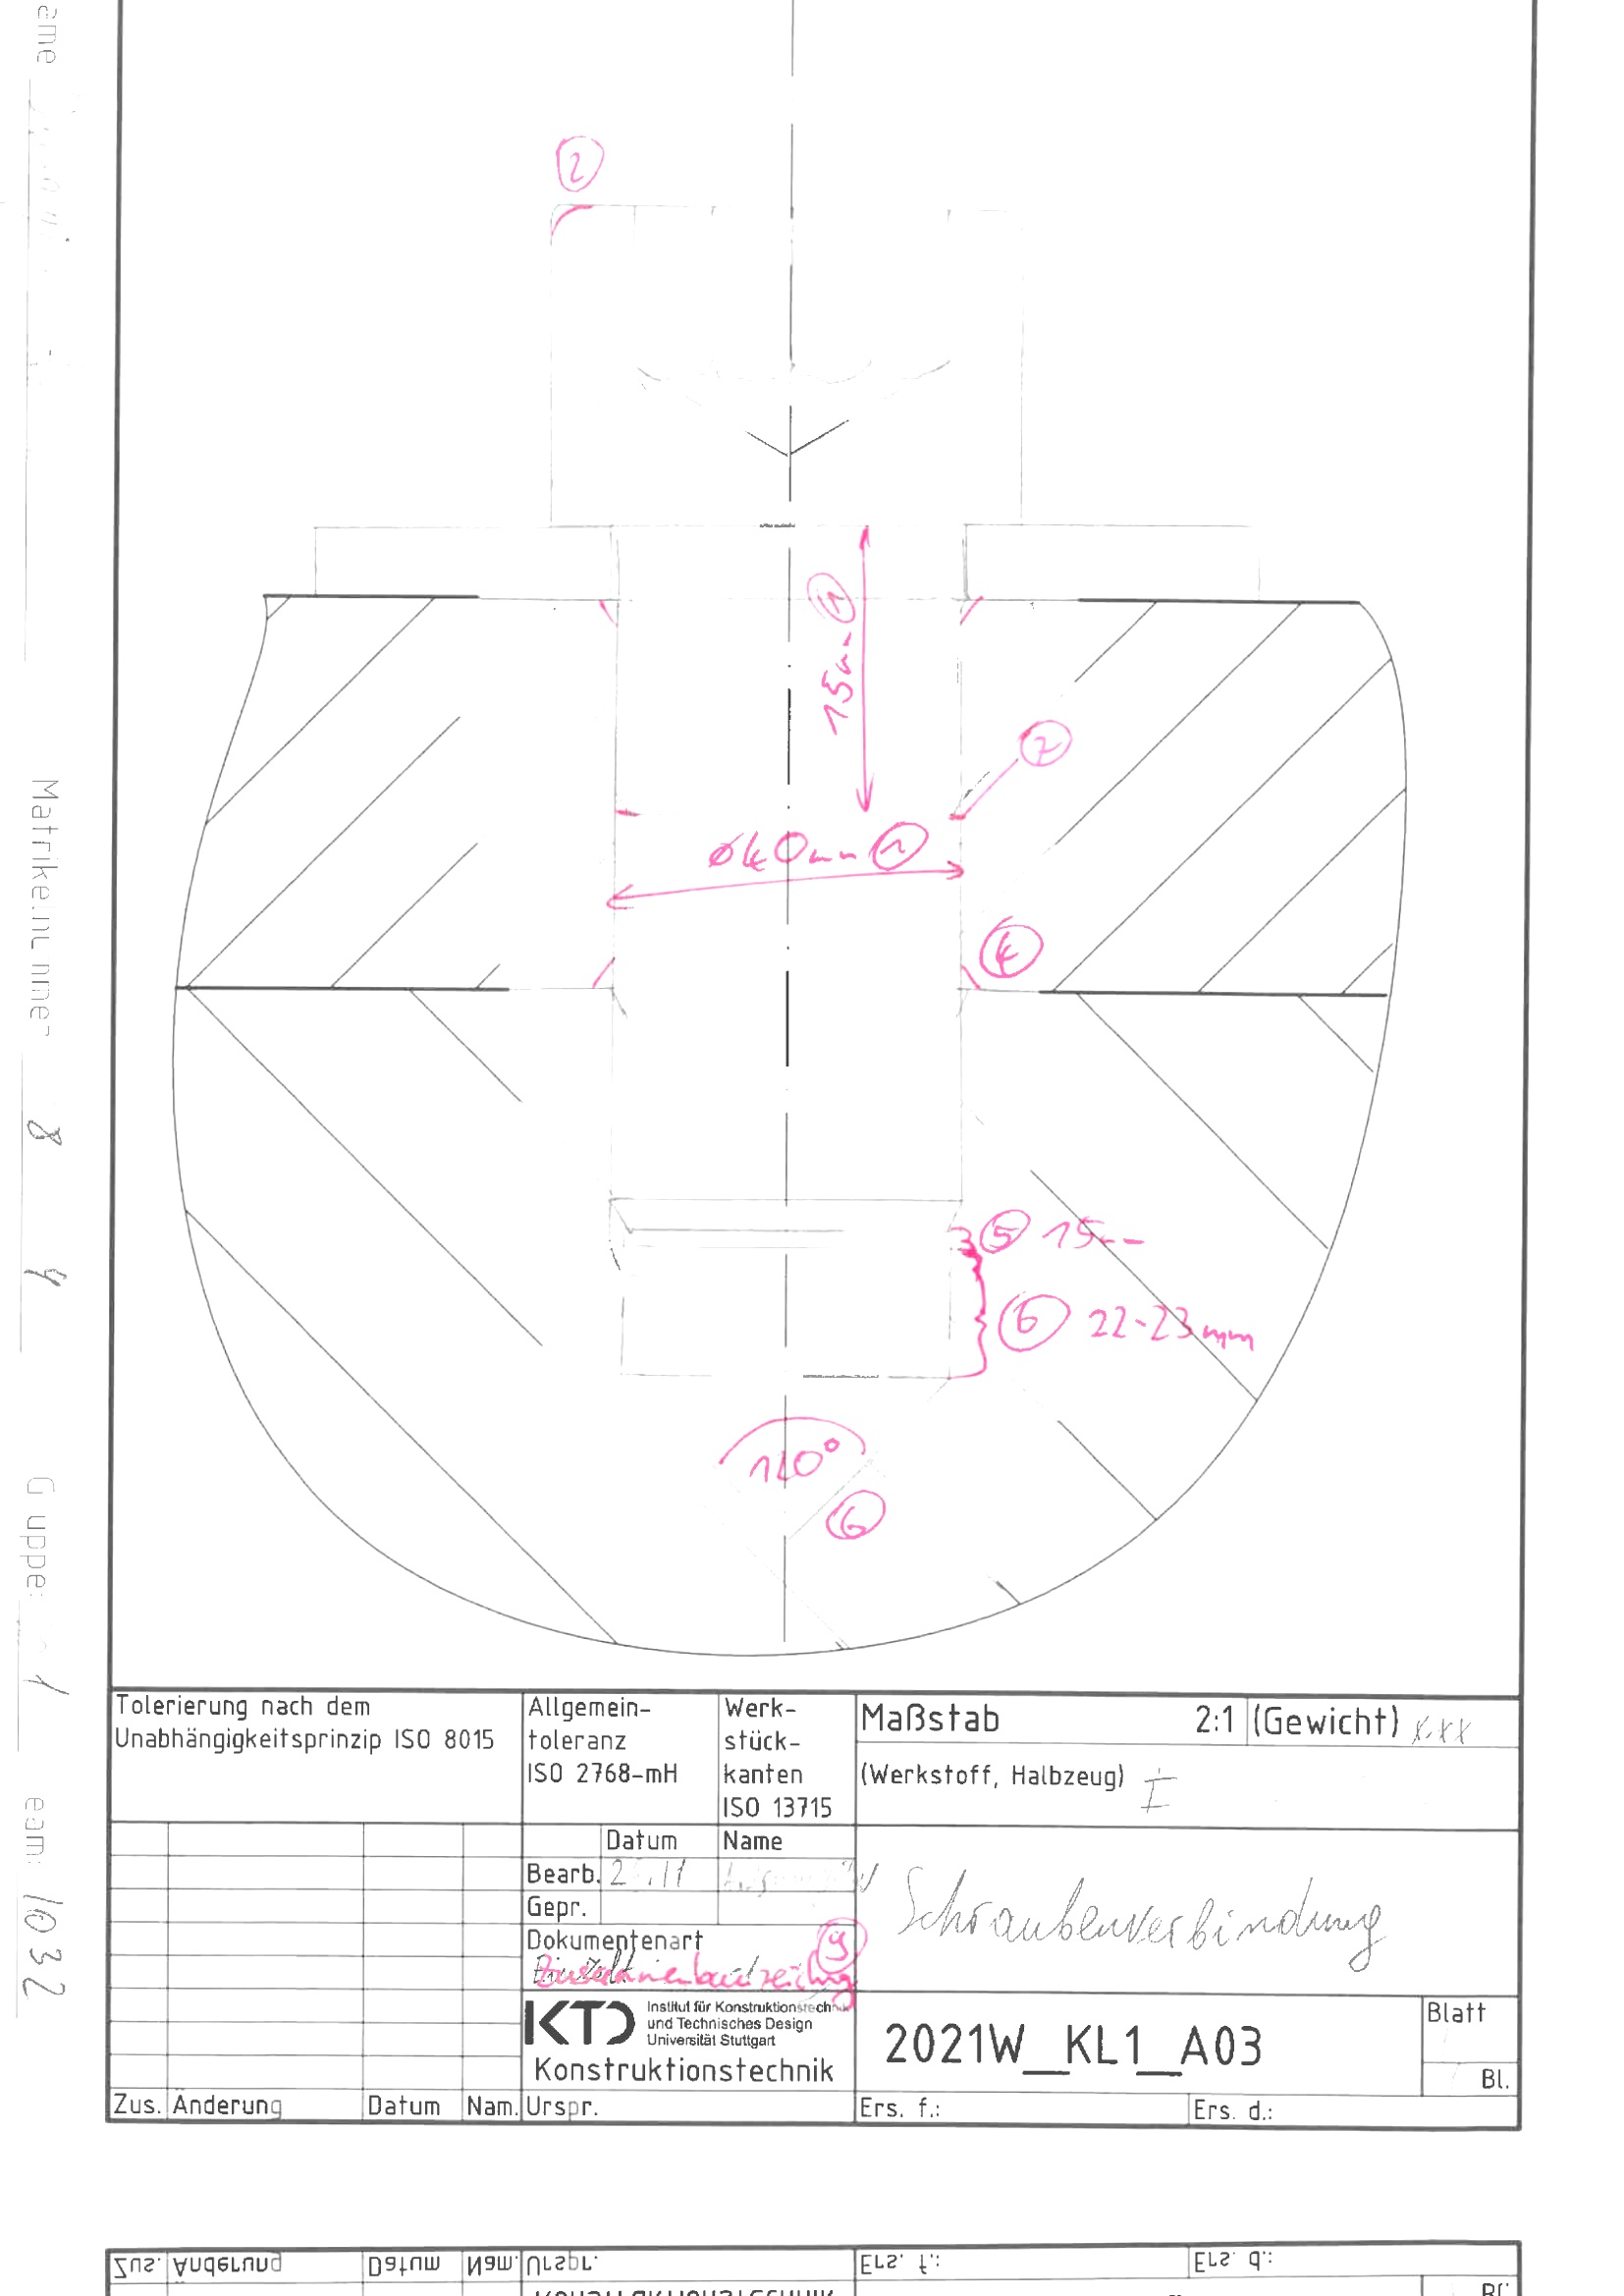 ame
Matrikelnummer 8 4
Gruppe: 1
eam: 1032
2
15mm 1
2
ø40mm 1
4
5 15mm
6 22-23mm
110°
6
Tolerierung nach dem
Unabhängigkeitsprinzip ISO 8015
Allgemein-
toleranz
ISO 2768-mH
Werk-
stück-
kanten
ISO 13715
Maßstab 2:1 (Gewicht) x.xx
(Werkstoff, Halbzeug) I
Datum Name
Bearb.
Gepr.
Dokumentenart 9
Zusammenbauzeichnung
Schraubenverbindung
KTD Institut für Konstruktionstechnik
und Technisches Design
Universität Stuttgart
Konstruktionstechnik
2021W_KL1_A03
Blatt
Bl.
Zus. Änderung Datum Nam. Urspr. Ers. f.: Ers. d.:
Zus. Änderung Datum Nam. Urspr. Ers. f.: Ers. d.: